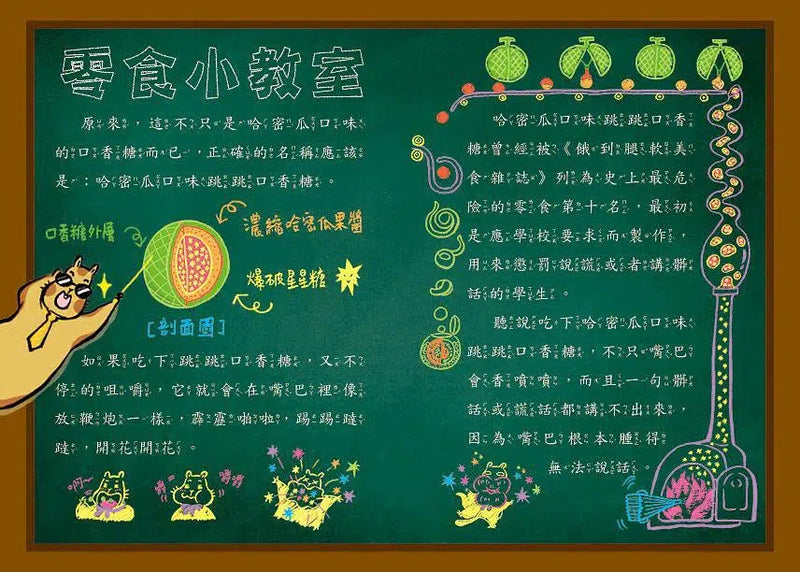 零食小教室
原來，這不只是哈密瓜口味
的口香糖而已，正確的名稱應該
是：哈密瓜口味跳跳口香糖。
口香糖外層
濃縮哈密瓜果醬
爆破星星糖
[剖面圖]
如果吃下跳跳口香糖，又不
停的咀嚼，它就會在嘴巴裡像
放鞭炮一樣，霹靂啪啦，踢踢躂
躂，開花開花。
啊~
嚼嚼
哈密瓜口味跳跳口香
糖曾經被《餓到腿軟美
食雜誌》列為史上最危
險的零食第十名，最初
是應學校要求而製作，
用來懲罰說謊或者講髒
話的學生。
聽說吃下哈密瓜口味
跳跳口香糖，不只嘴巴
會香噴噴，而且一句髒
話或謊話都講不出來，
因為嘴巴根本腫得
無法說話。